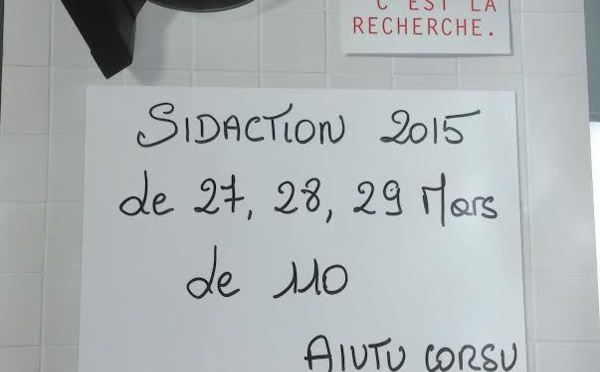 C'EST LA
RECHERCHE.
SIDACTION 2015
de 27, 28, 29 Mars
de 110
AIUTU CORSU